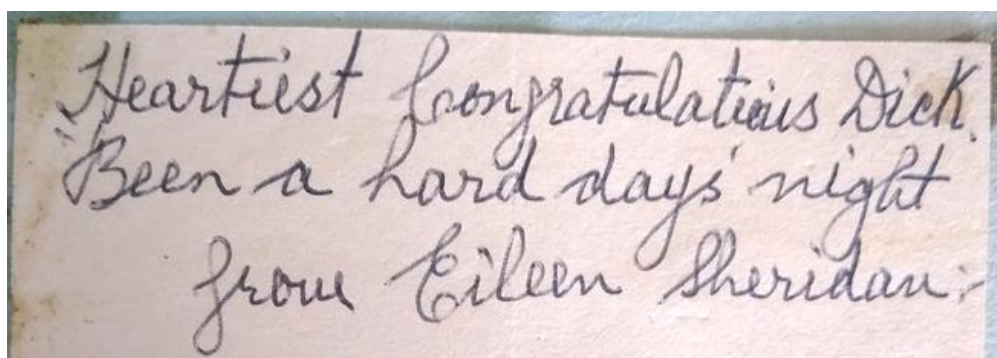 Heartiest Congratulations Dick.
Been a hard day's night
from Eileen Sheridan:-